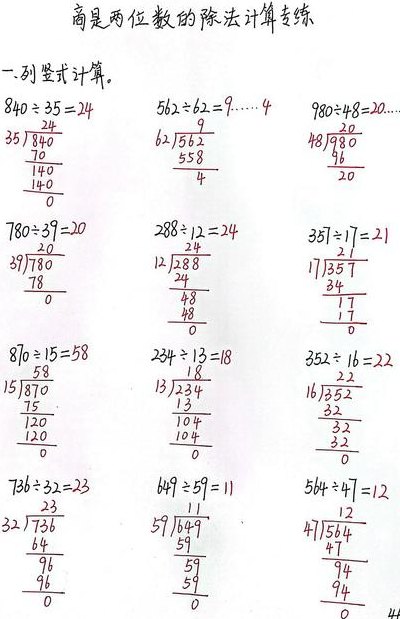 商是两位数的除法计算专练
一、列竖式计算。
840÷35=24 562÷62=9……4 980÷48=20…
24 9 20
35 840 62 562 48 980
70 558 96
140 4 20
140
0
780÷39=20 288÷12=24 357÷17=21
20 24 21
39 780 12 288 17 357
78 24 34
0 48 17
48 17
0 0
870÷15=58 234÷13=18 352÷16=22
58 18 22
15 870 13 234 16 352
75 13 32
120 104 32
120 104 32
0 0 0
736÷32=23 649÷59=11 564÷47=12
23 11 12
32 736 59 649 47 564
64 59 47
96 59 94
96 59 94
0 0 0